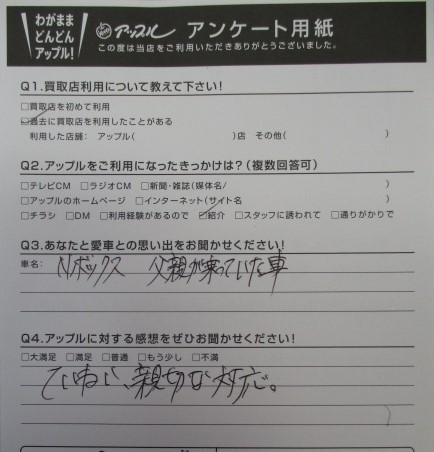 わがまま
どんどん
アップル!
アップル アンケート用紙
この度は当店をご利用いただきありがとうございました。
Q1.買取店利用について教えて下さい!
□買取店を初めて利用
☑過去に買取店を利用したことがある
利用した店舗: アップル( )店 その他( )
Q2.アップルをご利用になったきっかけは?(複数回答可)
□テレビCM □ラジオCM □新聞・雑誌(媒体名/ )
□アップルのホームページ □インターネット(サイト名 )
□チラシ □DM □利用経験があるので ☑紹介 □スタッフに誘われて □通りがかりで
Q3.あなたと愛車との思い出をお聞かせください!
車名: Nボックス 父親が乗っていた車
Q4.アップルに対する感想をぜひお聞かせください!
□大満足 □満足 □普通 □もう少し □不満
ていねい、親切な対応。